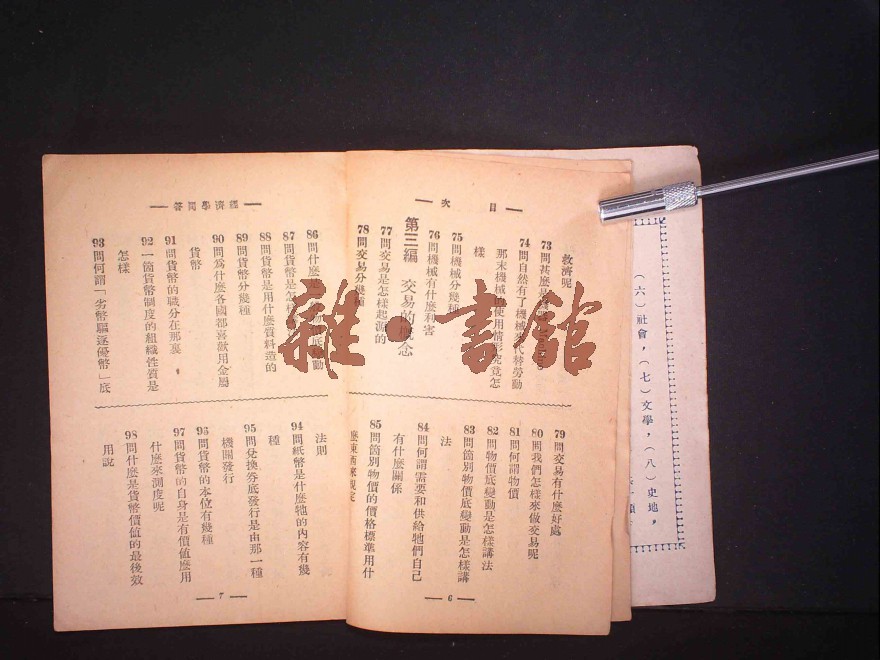 目次
救濟呢
73問甚麼是
74問自然有了機械 代替勞動
那末機械的使用情形究竟怎
樣
75問機械分幾種
76問機械有什麼利害
第三編 交易的概念
77問交易是怎樣起源的
78問交易分幾種
79問交易有什麼好處
80問我們怎樣來做交易呢
81問何謂物價
82問物價底變動是怎樣講法
83問箇別物價底變動是怎樣講
法
84問何謂需要和供給牠們自己
有什麼關係
85問箇別物價的價格標準用什
麼東西來規定
6
經濟學問答
86問什麼是 物價底變動
87問貨幣是怎樣
88問貨幣是用什麼質料造的
89問貨幣分幾種
90問爲什麼各國都喜歡用金屬
貨幣
91問貨幣的職分在那裏
92一箇貨幣制度的組織性質是
怎樣
93問何謂「劣幣驅逐優幣」底
法則
94問紙幣是什麼牠的內容有幾
種
95問兌換券底發行是由那一種
機關發行
96問貨幣的本位有幾種
97問貨幣的自身是有價值應用
什麼來測度呢
98問什麼是貨幣價值的最後效
用說
7
(六)社會,(七)文學,(八)史地,
雜·書館